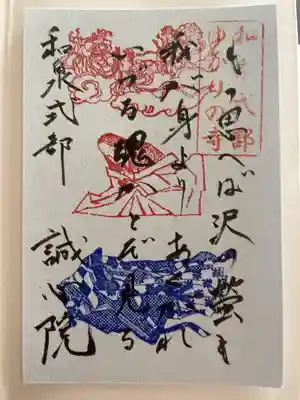 和泉式部
ゆかりの寺
もの思へば沢の螢も
我が身よりあくがれ
いづる魂かとぞ見る
和泉式部 誠心院